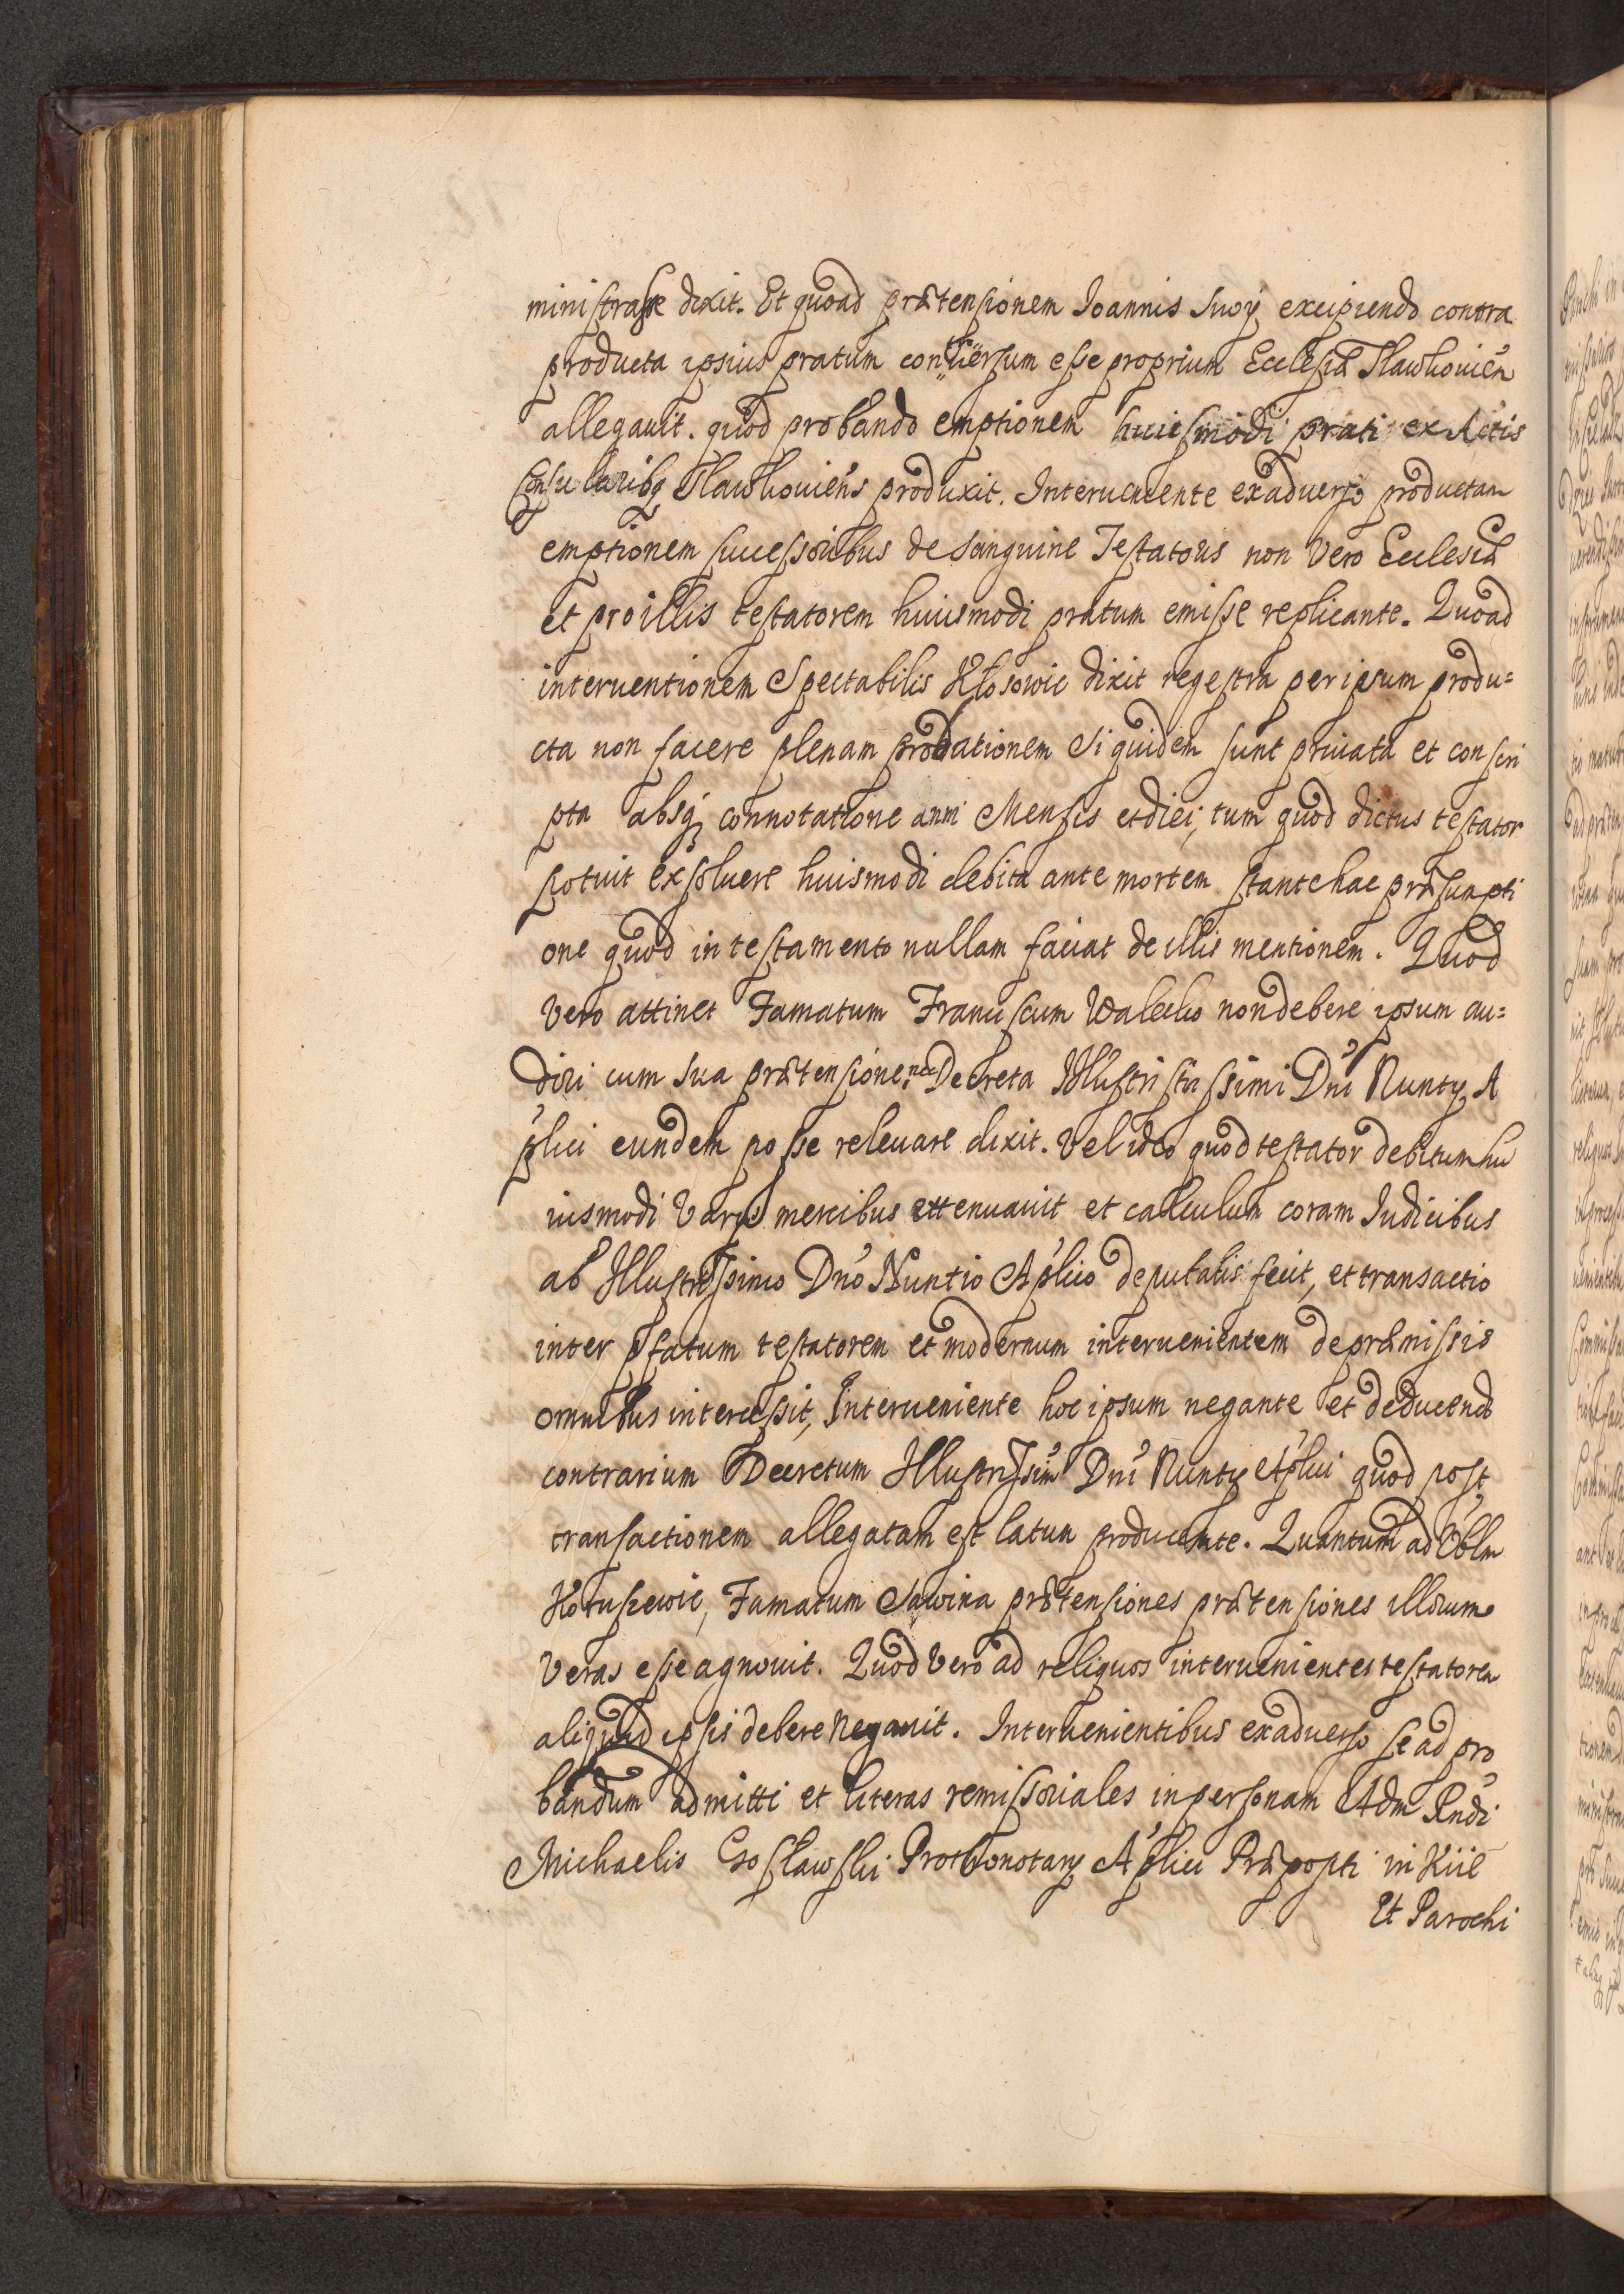 ministrasse dixit. Et quoad prætensionem Ioannis Suoy excipiendo contra
producta ipsius pratum conuersum esse proprium Ecclesiæ Slawkouien̄
allegauit. quod probando emptionem huiusmodi prati ex Actis
Consularibq Slawkouien̄s produxit. Interueniente exaduerso productam
emptionem successoribus de sanguine Testatoris non Vero Ecclesiæ
et pro illis testatorem huiusmodi pratum emisse replicante. Quoad
interuentionem Spectabilis Kłosowic dixit regestra per ipsum produ=
cta non facere plenam probationem Siquidem sunt priuata et conscri
pta absq connotatione anni Mensis et diei, tum quod dictus testator
potuit exsoluere huismodi debita ante mortem stante hac præsumpti
one quod in testamento nullam faciat de illis mentionem. Quod
Vero attinet Famatum Franciscum Walecko non debere ipsum au=
diri cum sua prætensione, nec Decreta Illustristrissimi Dni Nuntÿ A
plici eundem posse releuare dixit. Vel ideo quod testator debitum hu
iusmodi Varÿs mercibus attenuauit et calculum coram Iudicibus
ab Illustrissimo Dno Nuntio Aplico deputatis fecit, et transactio
inter pfatum testatorem et modernum interuenientem de præmissis
omnibus intercessit, Interueniente hoc ipsum negante et deducendo
contrarium Decretum Illustrissimi Dni Nuntÿ Aplici quod post
transactionem allegatam est latum producente. Quantum ad Nblm
Kotusewic, Famatum Sawina prætensiones prætensiones illorum
Veras esse agnouit. Quod Vero ad reliquos interuenientes testatorem
aliquid ipsis debere Negauit. Interuenientibus exaduerso se ad pro
bandum admitti et literas remissoriales in personam Adm Rndi
Michaelis Gosławski Prothonotarÿ Aplici Præposti in Kiie
Et Parochi